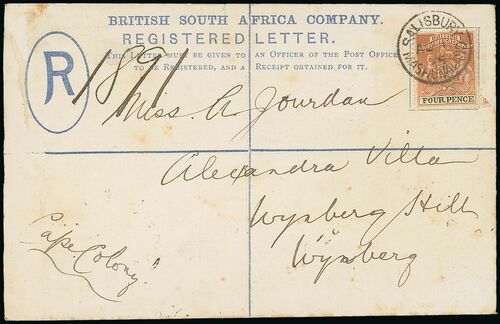 BRITISH SOUTH AFRICA COMPANY.
REGISTERED LETTER.
THIS LETTER MUST BE GIVEN TO AN OFFICER OF THE POST OFFICE
TO BE REGISTERED, AND A RECEIPT OBTAINED FOR IT.
R
SALISBURY
FOUR PENCE
Miss A Jourdan
Alexandra Villa
Wynberg Hill
Wynberg
Cape Colony